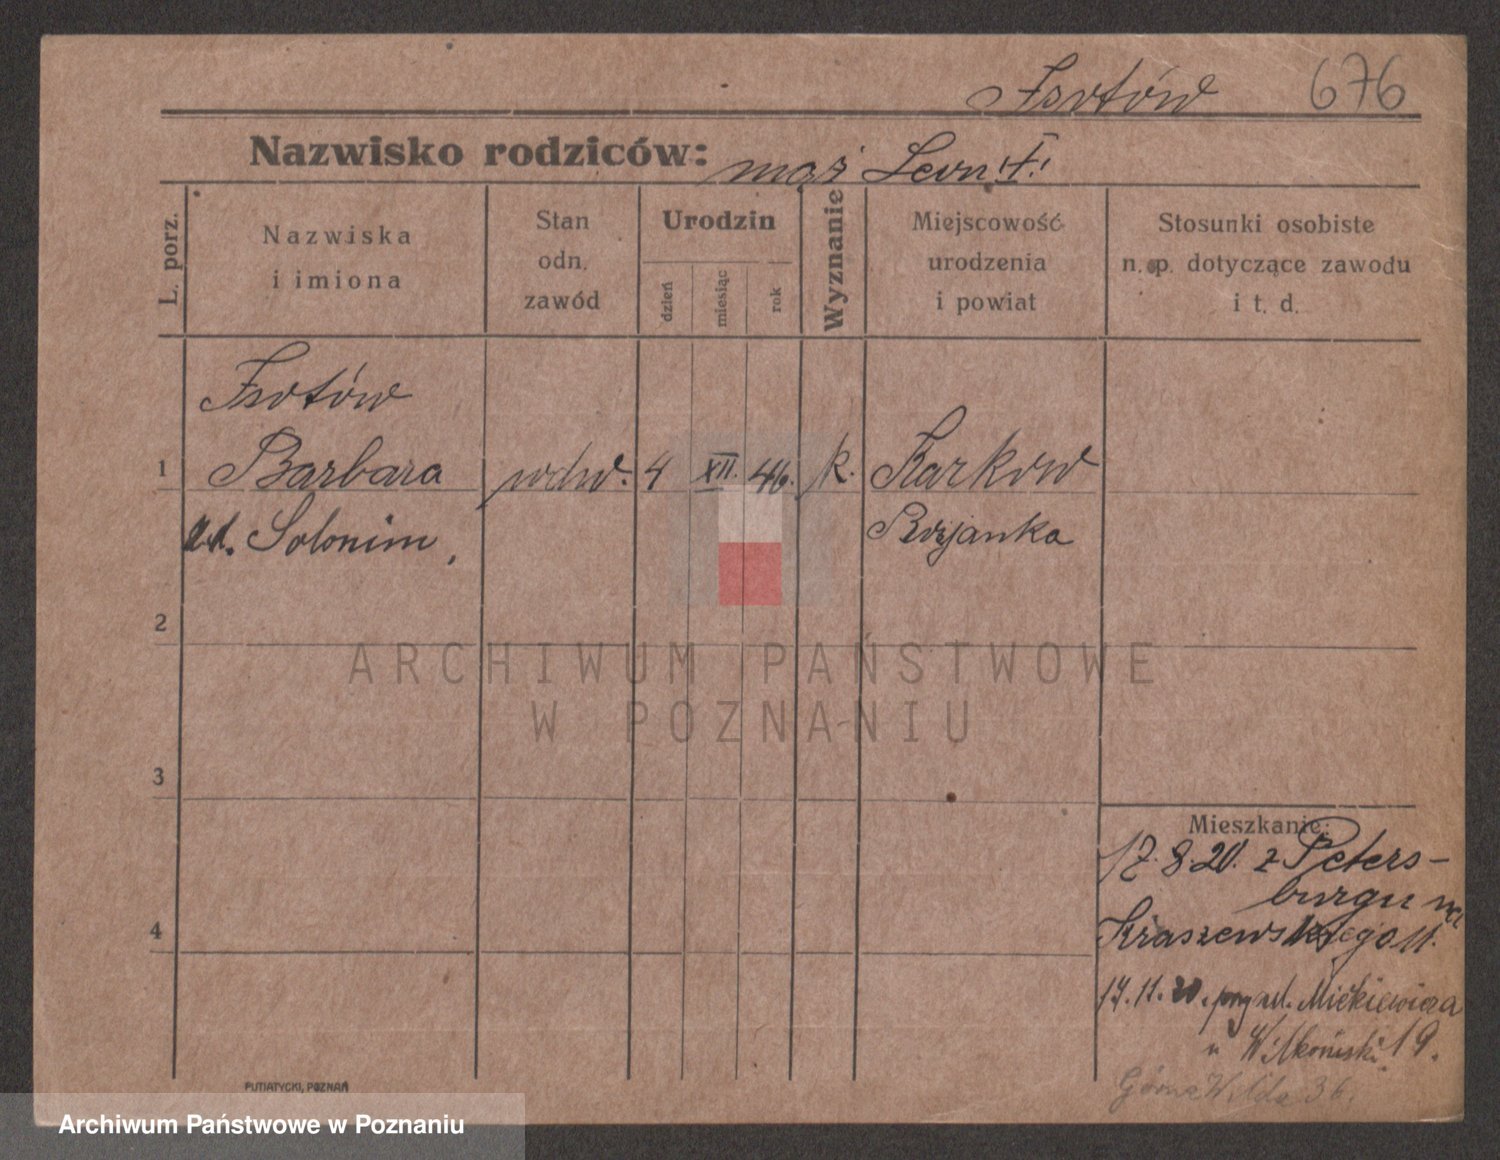 Isotów 676
Nazwisko rodziców: mąż Leon †.
L. porz.
Nazwiska
i imiona
Stan
odn.
zawód
Urodzin
dzień
miesiąc
rok
Wyznanie
Miejscowość
urodzenia
i powiat
Stosunki osobiste
n. p. dotyczące zawodu
i t. d.
Isotów
1 Barbara wdw. 4 XII. 46. k. Karkow
Solonim,
2
3
4
Mieszkanie:
17.8.20. z Peters-
burgu na
Kraszewskiego 11.
17.11.20. przy ul. Mickiewicza
u Wilkoński 19.
Górna Wilda 36.
PUTIATYCKI, POZNAŃ
ARCHIWUM PAŃSTWOWE
W POZNANIU
Archiwum Państwowe w Poznaniu